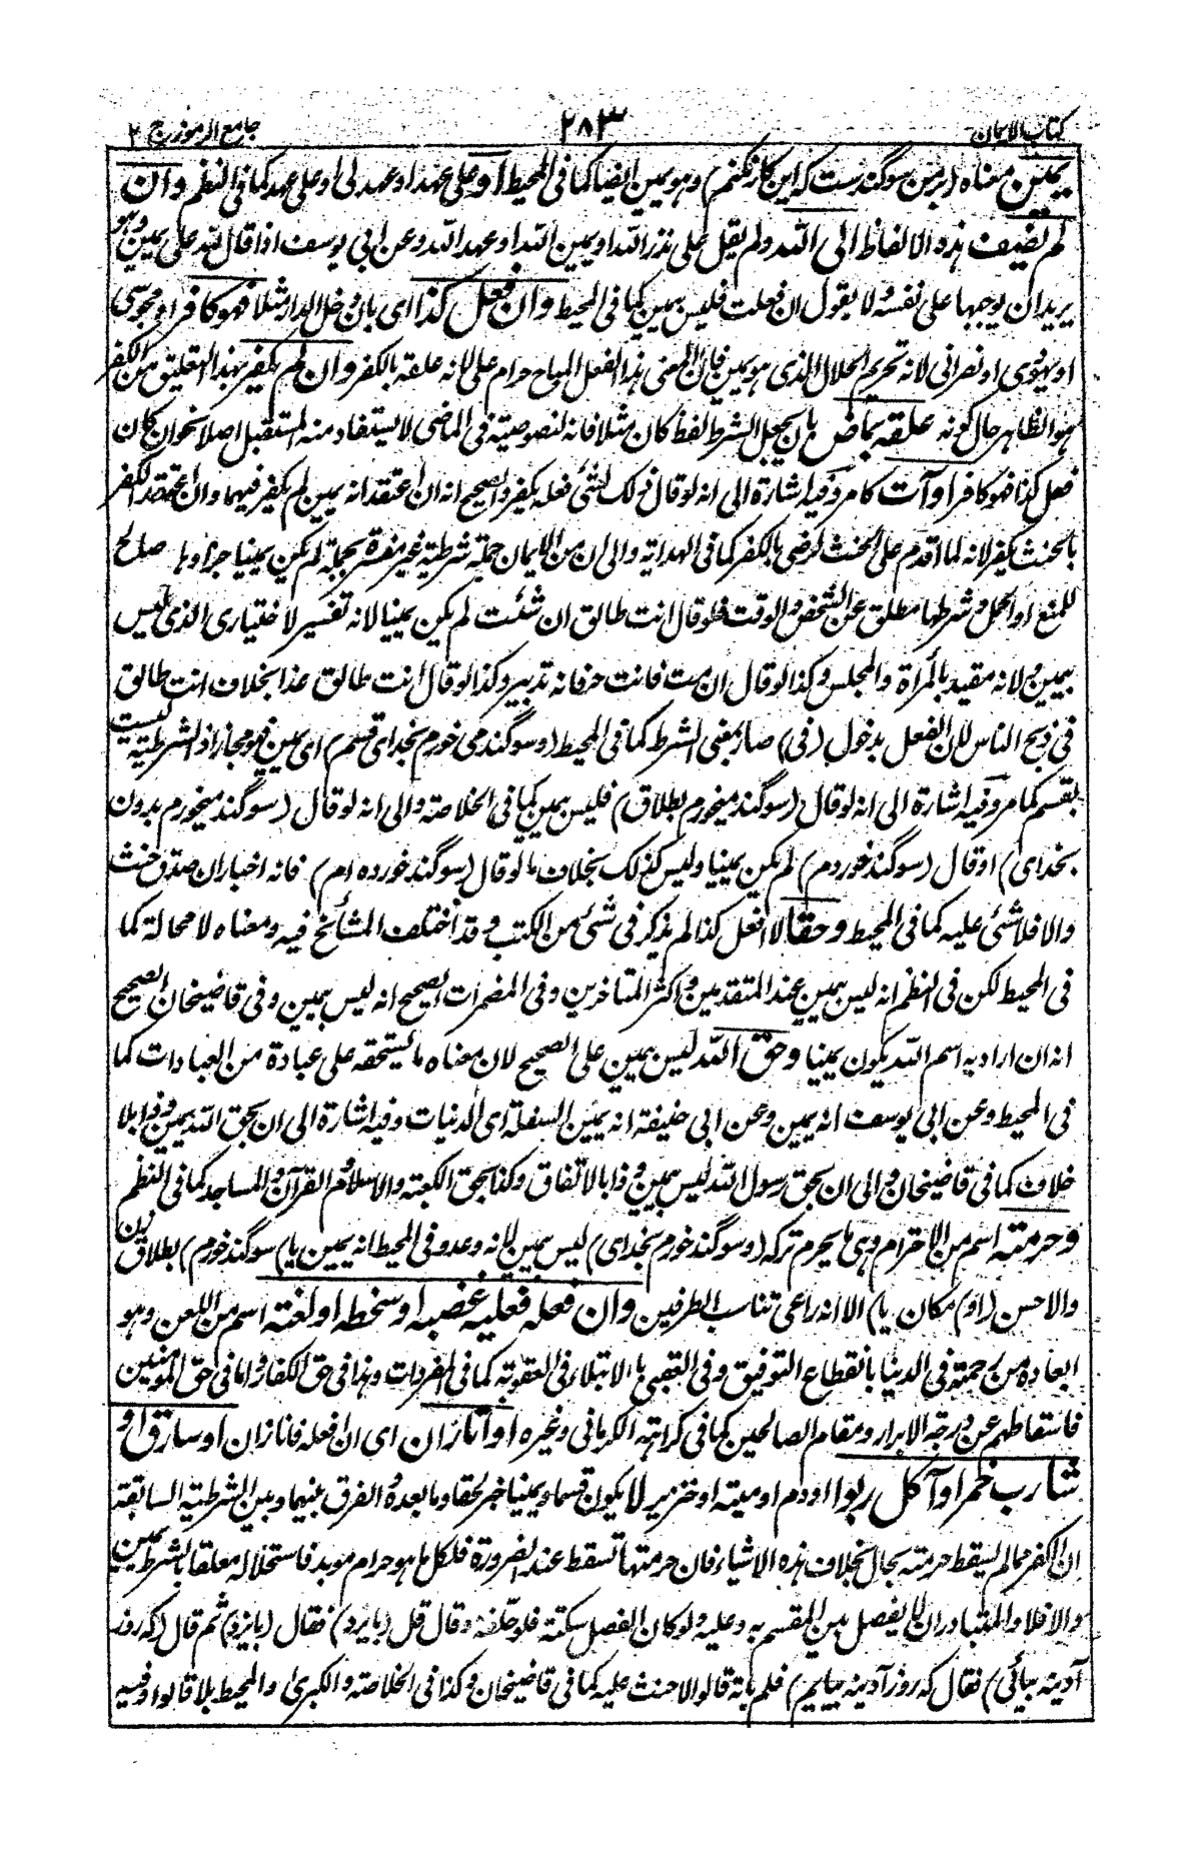 كتاب الايمان ٢٨٣ جامع الرموز ج ٢
يمين معناه (بر من سوگند ست كه اين كار نكنم) وهو يمين ايضا كما فى المحيط او على عهد او عهد لى او على عهد كما فى النظم وان
لم يضيف هذه الالفاظ الى الله ولم يقل على نذر الله او يمين الله او عهد الله وعن ابى يوسف اذا قال لله على يمين وهو
يريد ان يوجبها على نفسه ولا يقول ان فعلت فليس بيمين كما فى المحيط وان فعل كذا اى بان دخل الدار مثلا فهو كافر او مجوسى
او يهودى او نصرانى لانه تحريم الحلال الذى هو يمين فان المعنى هذا الفعل المباح حرام على لانه علقه بالكفر وان لم يكفر بهذا التعليق من الكفر
هو الظاهر حال كونه علقه بماض بان يجعل الشرط لفظ كان مثلا فانه لنصوصيته فى الماضى لا يستفاد منه المستقبل اصلا نحو ان كان
فعل كذا فهو كافر او آت كما مر وفيه اشارة الى انه لو قال ذلك لشئ فعله يكفر والصحيح انه ان اعتقد انه يمين لم يكفر فيهما وان اعتقد الكفر
بالحنث يكفر لانه لما اقدم على الحنث رضى بالكفر كما فى الهداية والى ان من الايمان جملة شرطية غير مفسرة بجملة لم يكن يمينا جزاؤها صالح
للمنع او الحمل وشرطها مطلق عن الشخص والوقت فلو قال انت طالق ان شئت لم يكن يمينا لانه تفسير لاختيارى الذى ليس
بيمين ولانه مقيد بالمرأة والمجلس وكذا لو قال ان مت فانت حر فانه تدبير وكذا لو قال انت طالق غدا بخلاف انت طالق
فى ذبح الناس لان الفعل بدخول (فى) صار بمعنى الشرط كما فى المحيط (وسوگند مى خورم بخداى قسم) اى يمين فهو مجاز اذ الشرطية ليست
بقسم كما مر وفيه اشارة الى انه لو قال (سوگند ميخورم بطلاق) فليس بيمين كما فى الخلاصة والى انه لو قال (سوگند ميخورم بدون
بخداى) او قال (سوگند خوردم) لم يكن يمينا وليس كذلك بخلاف ما لو قال (سوگند خورده ام) فانه اخبار ان صدق حنث
والا فلا شئ عليه كما فى المحيط وحقا لا افعل كذا لم يذكر فى شئ من الكتب وقد اختلف المشائخ فيه ومعناه لا محالة كما
فى المحيط لكن فى النظم انه ليس بيمين عند المتقدمين واكثر المتاخرين وفى المضمرات الصحيح انه ليس بيمين وفى قاضيخان الصحيح
انه ان اراد به اسم الله يكون يمينا وحق الله ليس بيمين على الصحيح لان معناه ما يستحقه على عبادة من العبادات كما
فى المحيط وعن ابى يوسف انه يمين وعن ابى حنيفة انه يمين السفلة اى الدنيات وفيه اشارة الى ان بحق الله يمين وذا بلا
خلاف كما فى قاضيخان والى ان بحق رسول الله ليس بيمين وذا بالاتفاق وكذا بحق الكعبة والاسلام والقرآن والمساجد كما فى النظم
وحرمته اسم من الاحترام وهى ما يحرم تركه (وسوگند خورم بخداى) ليس بيمين لانه وعد وفى المحيط انه يمين (يا سوگند خورم) بطلاق زن
والاحسن (او) مكان (يا) الا انه راعى تناسب الطرفين وان فعله فعليه غضبه او سخطه او لعنته اسم من اللعن وهو
ابعاده من رحمته فى الدنيا بانقطاع التوفيق وفى العقبى بالابتلاء فى العقوبة كما فى المفردات وهذا فى حق الكفار واما فى حق المؤمنين
فاسقاطهم عن درجة الابرار ومقام الصالحين كما فى كراهة الكرمانى وغيره او انا زان اى ان فعله فانا زان او سارق او
شارب خمر او آكل ربوا او دم او ميتة او خنزير لا يكون قسما ويمينا خبر لحقا وما بعده والفرق بينهما وبين الشرطية السابقة
ان الكفر مما لم يسقط حرمته بحال بخلاف هذه الاشياء فان حرمتها تسقط عند الضرورة فلكل ما هو حرام مؤبد فاستحلاله معلقا بالشرط يمين
والا فلا والمتبادر ان لا يفصل بين المقسم به وعليه ولو كان الفصل سكتة فلو حلفه وقال قل (بايزد) فقال (بايزد) ثم قال (كه روز
آدينه بيائى) فقال كه روز آدينه بيايم) فلم يأته قالوا لا حنث عليه كما فى قاضيخان وكذا فى الخلاصة والكبرى والمحيط بلا قالوا وفيه